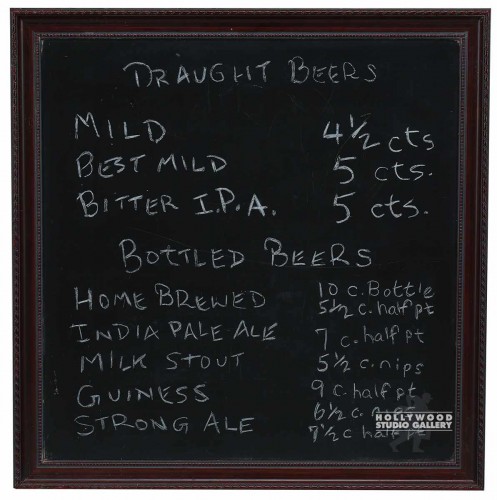 DRAUGHT BEERS
MILD 4½ cts
BEST MILD 5 cts.
BITTER I.P.A. 5 cts.
BOTTLED BEERS
HOME BREWED 10 c. Bottle
5½ c. half pt
INDIA PALE ALE 7 c. half pt
MILK STOUT 5½ c. nips
GUINESS 9 c. half pt
6½ c.
STRONG ALE 7½ c half pt
HOLLYWOOD
STUDIO GALLERY